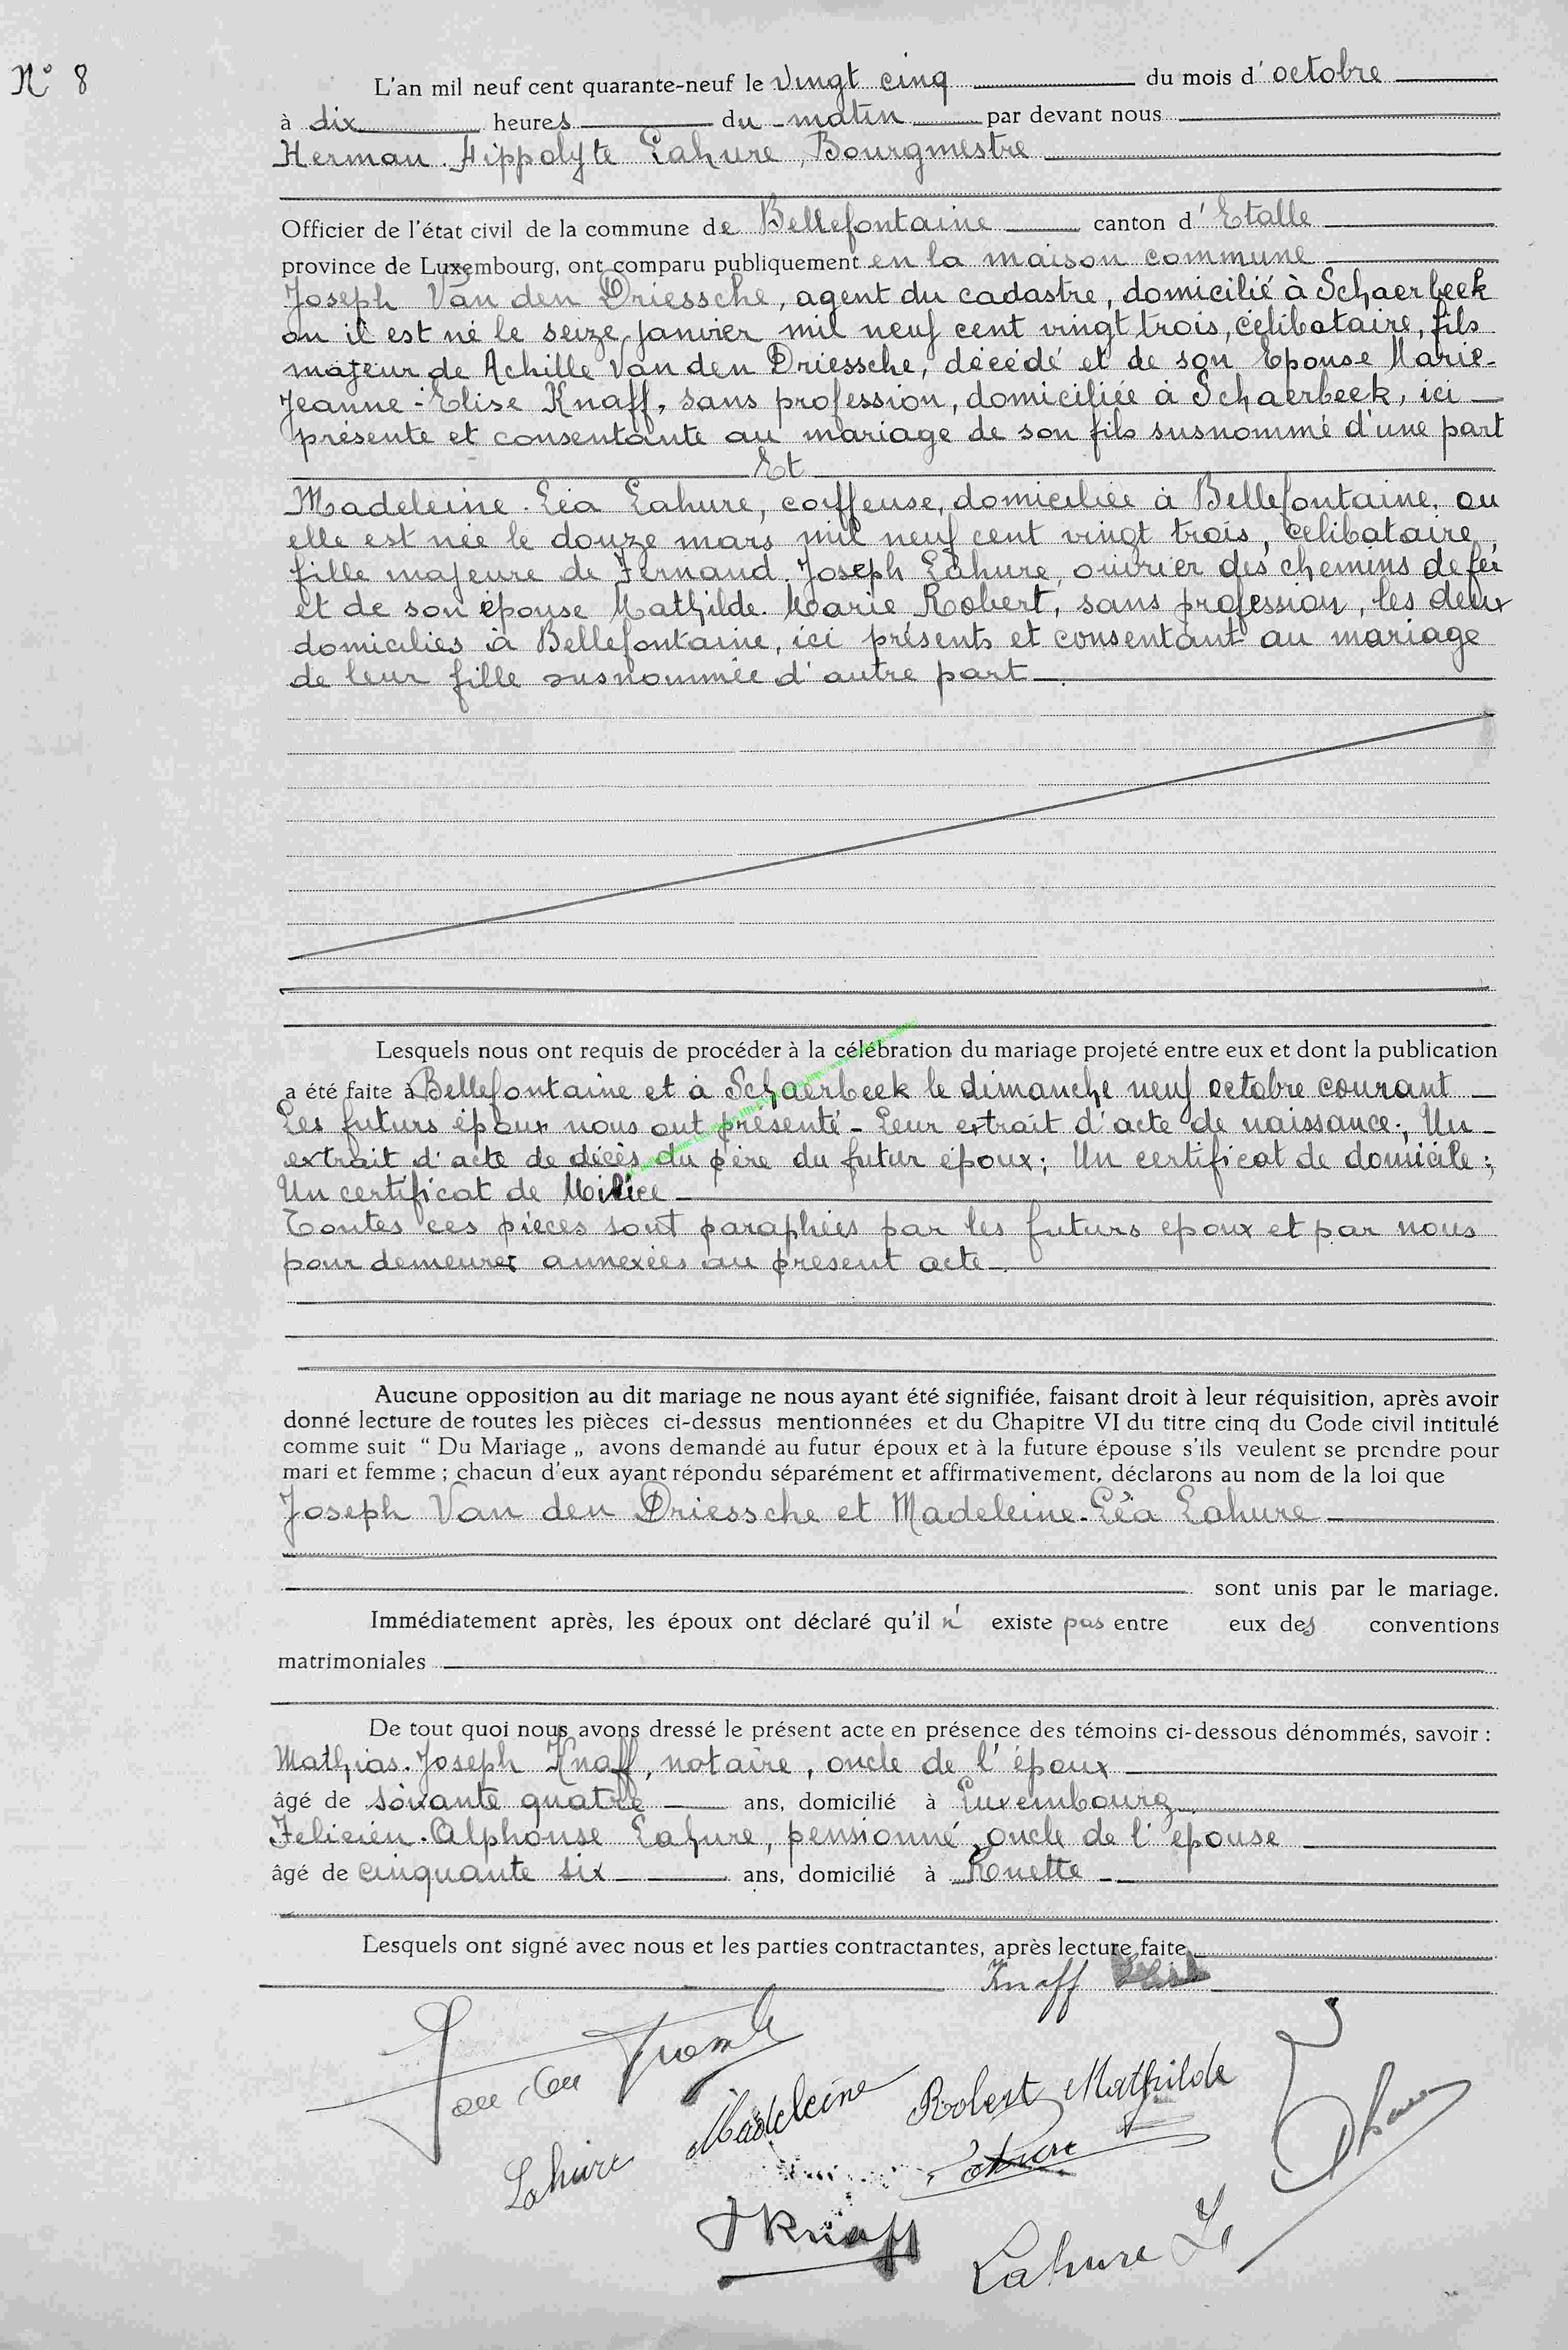 N° 8
L'an mil neuf cent quarante-neuf le vingt cinq du mois d'octobre
à dix heures du matin par devant nous
Herman. Hippolyte Lahure, Bourgmestre
Officier de l'état civil de la commune de Bellefontaine canton d'Etalle
province de Luxembourg, ont comparu publiquement en la maison commune
Joseph Van den Driessche, agent du cadastre, domicilié à Schaerbeek
ou il est né le seize janvier mil neuf cent vingt trois, célibataire, fils
majeur de Achille Van den Driessche, décédé et de son Epouse Marie-
Jeanne-Elise Knaff, sans profession, domiciliée à Schaerbeek, ici
présente et consentante au mariage de son fils susnommé d'une part
Et
Madeleine. Léa Lahure, coiffeuse, domiciliée à Bellefontaine, ou
elle est née le douze mars mil neuf cent vingt trois, célibataire,
fille majeure de Fernand. Joseph Lahure, ouvrier des chemins de fer
et de son épouse Mathilde. Marie Robert, sans profession, les deux
domiciliés à Bellefontaine, ici présents et consentant au mariage
de leur fille susnommée d'autre part.
Lesquels nous ont requis de procéder à la célébration du mariage projeté entre eux et dont la publication
a été faite à Bellefontaine et à Schaerbeek le dimanche neuf octobre courant
Les futurs époux nous ont présenté - Leur extrait d'acte de naissance; Un
extrait d'acte de décès du père du futur époux; Un certificat de domicile;
Un certificat de Milice
Toutes ces pièces sont paraphées par les futurs epoux et par nous
pour demeurer annexées au présent acte.
Aucune opposition au dit mariage ne nous ayant été signifiée, faisant droit à leur réquisition, après avoir
donné lecture de toutes les pièces ci-dessus mentionnées et du Chapitre VI du titre cinq du Code civil intitulé
comme suit “ Du Mariage „ avons demandé au futur époux et à la future épouse s'ils veulent se prendre pour
mari et femme ; chacun d'eux ayant répondu séparément et affirmativement, déclarons au nom de la loi que
Joseph Van den Driessche et Madeleine-Léa Lahure
sont unis par le mariage.
Immédiatement après, les époux ont déclaré qu'il n' existe pas entre eux des conventions
matrimoniales
De tout quoi nous avons dressé le présent acte en présence des témoins ci-dessous dénommés, savoir :
Mathias. Joseph Knaff, notaire, oncle de l'époux
âgé de soixante quatre ans, domicilié à Luxembourg
Felicien. Alphonse Lahure, pensionné, oncle de l'épouse
âgé de cinquante six ans, domicilié à Rouette
Lesquels ont signé avec nous et les parties contractantes, après lecture faite
Knaff
Lahure Madeleine Robert Mathilde
Lahure
J Knaff
Lahure